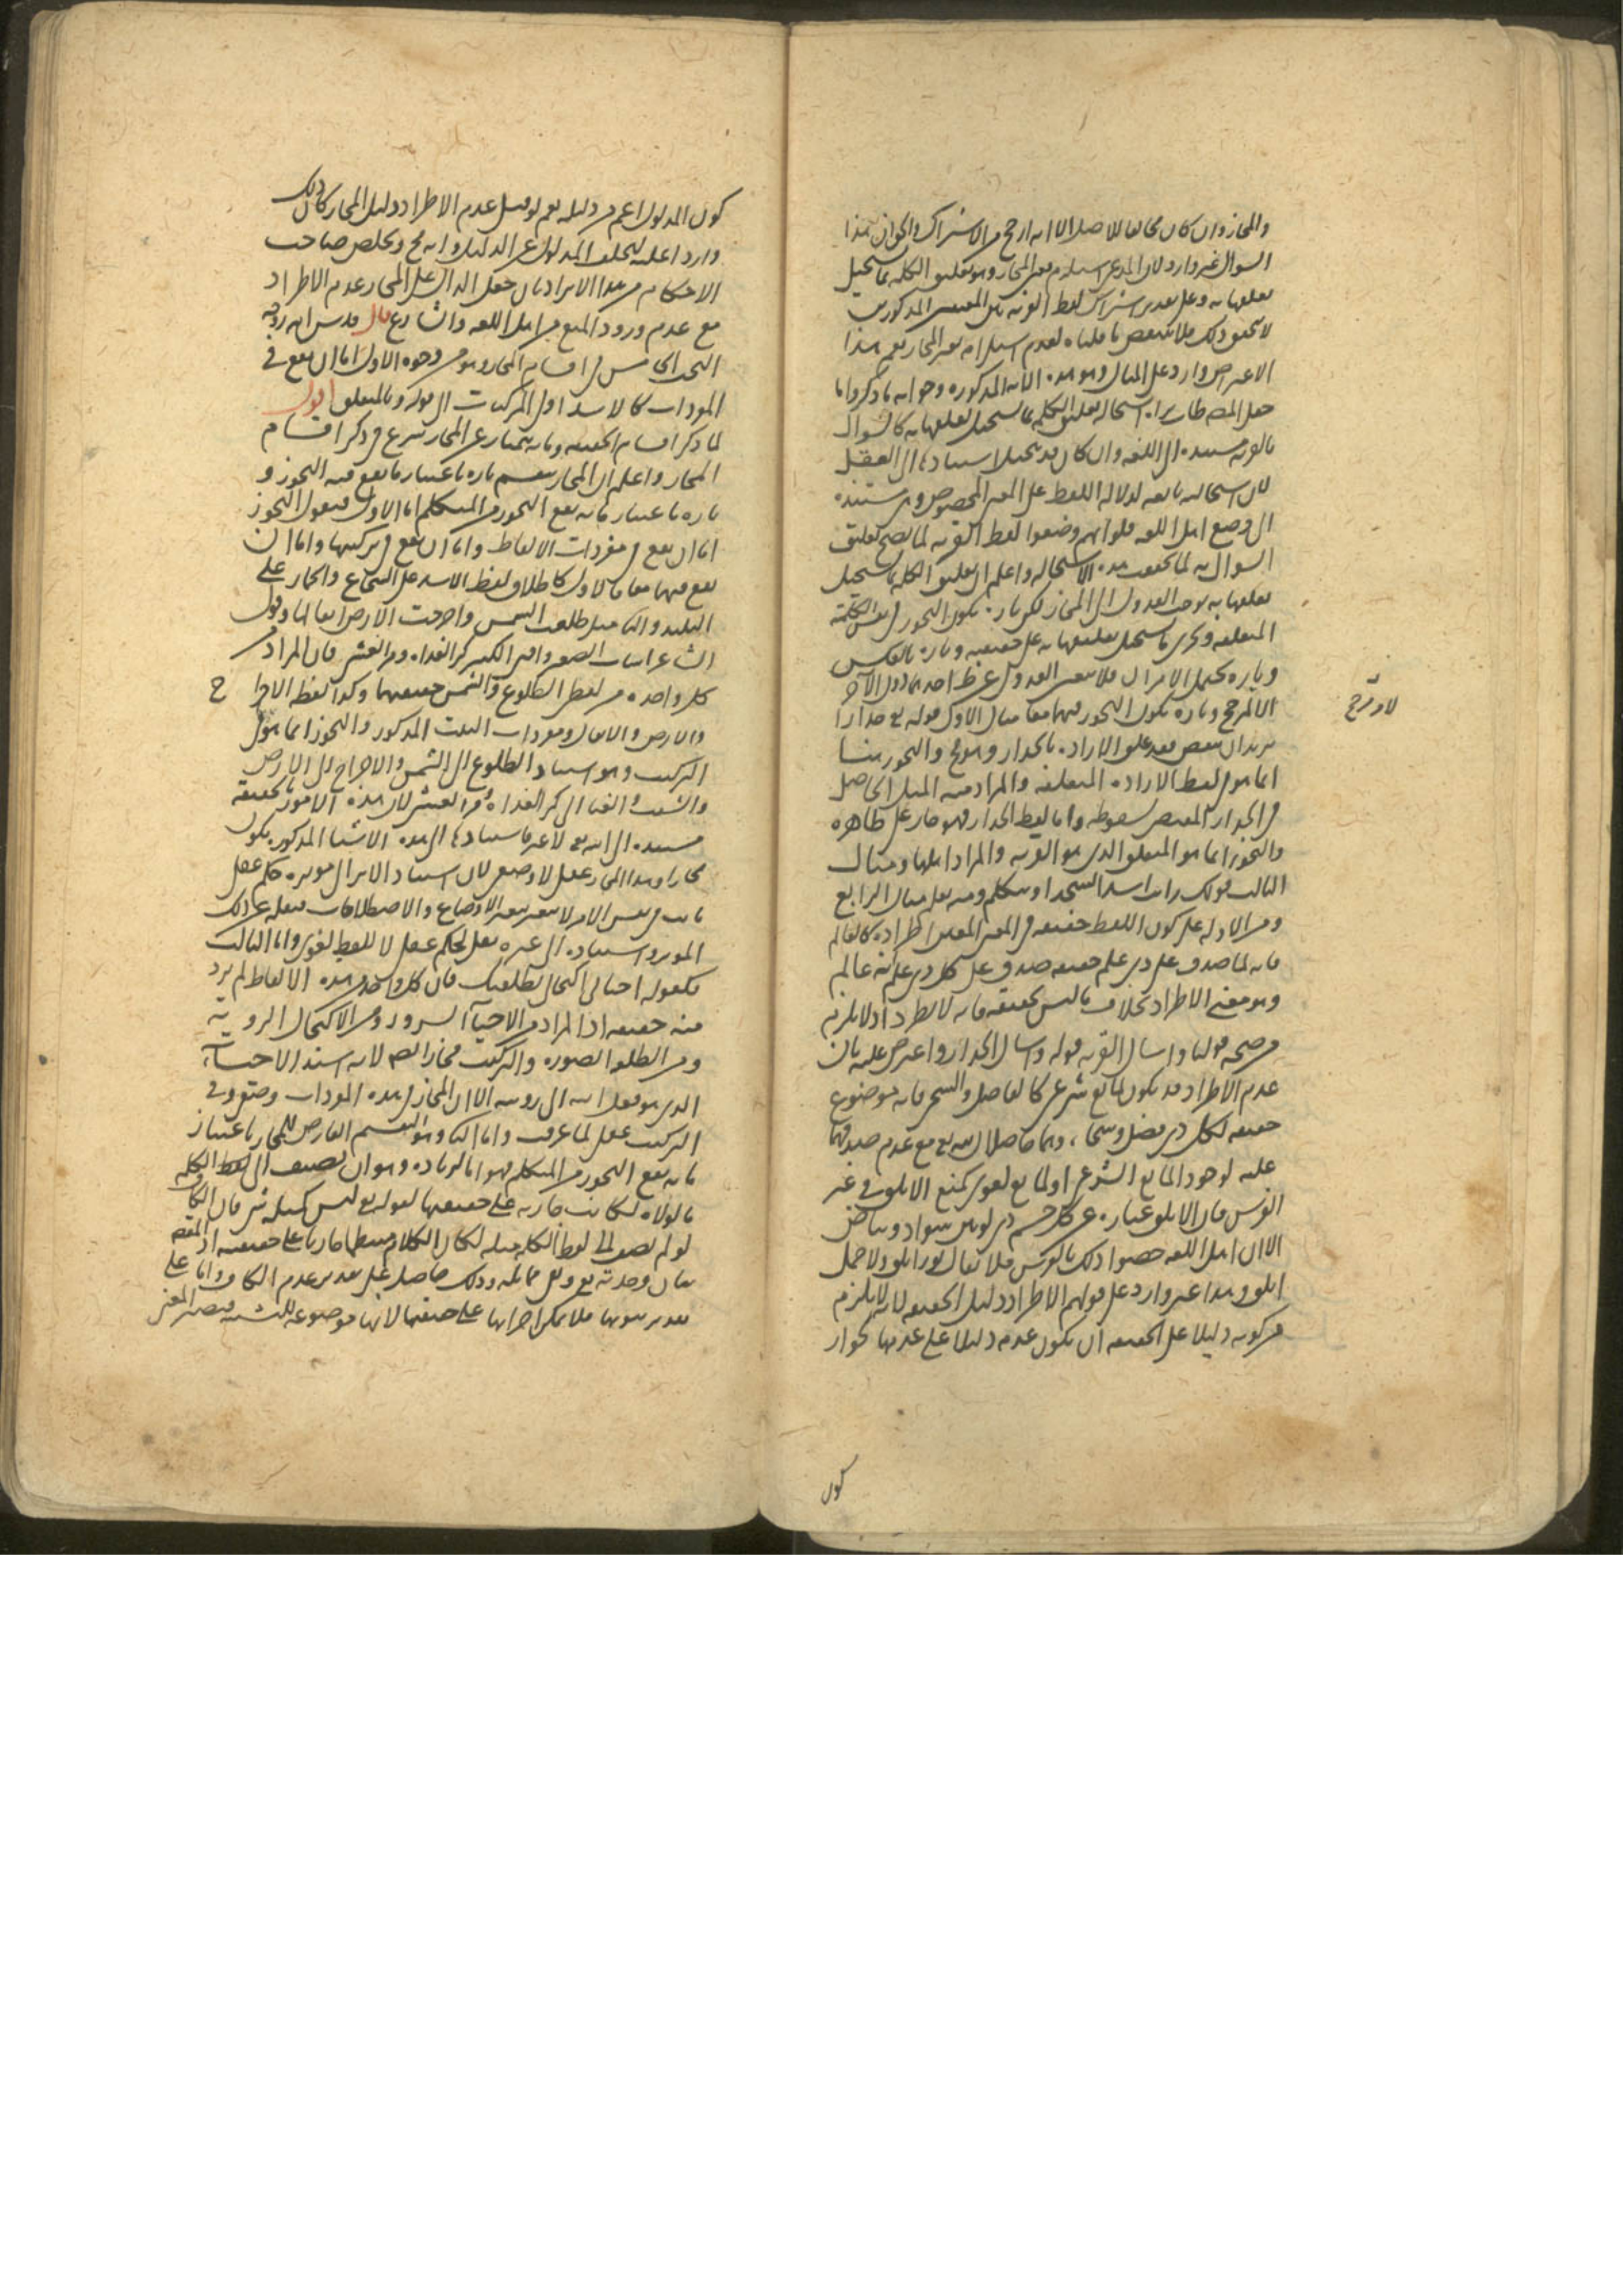 والمجاز وان كان مخالفا للاصل الا انه ارجح من الاشتراك والجواب هذا
السوال غير وارد لان المدعى استلزام تعين المجاز وهو تعليق الكلمه بما يستحيل
تعلقها به وعلى تقدير اشتراك لفظ القريه بين المعنيين المذكورين
لا يتحقق ذلك فلا ينتقض ما قلناه لعدم استلزامه تعين المجاز نعم هذا
الاعتراض وارد على المثال وهو هذه الآيه المذكوره وجوابه ما ذكر واما
جعل المص طاب ثراه استحاله تعليق الكلمه بما يستحيل تعلقها به كالسوال
بالقريه مستنده الى اللغه وان كان قد يتخيل استنادها الى العقل
لان استحالته تابعه لدلاله اللفظ على المعنى المخصوص وهي مستنده
الى وضع اهل اللغه فلو انهم وضعوا لفظ القريه لما يصح تعليق
السوال به لما تحققت هذه الاستحاله واعلم ان تعليق الكلمه بما يستحيل
تعلقها به يوجب العدول الى المجاز لكن تاره يكون التجوز في نفس الكلمة
المتعلقه وتجرى ما يستحيل تعليقها به على حقيقته وتاره بالعكس
وتاره يحتمل الامران فلا يتعين العدول عن ظ احدهما دون الآخر
الا لمرجح وتاره يكون التجوز فيهما معا مثال الاول قوله تع جدارا
يريد ان ينقض فقد علق الاراده بالجدار وهو مح والتجوز هنا
انما هو في لفظ الاراده المتعلقه والمراد منه الميل الحاصل
في الجدار المقتضي لسقوطه واما لفظ الجدار فهو جار على ظاهره
والتجوز انما هو المتعلق الذي هو القريه والمراد اهلها ومثال
الثالث قولك رايت اسدا يتكلم ومنه يعلم مثال الرابع
ومن الادله على كون اللفظ حقيقه في المعنى المعين اطراده كالعالم
فانه لما صدق على ذي علم حقيقه صدق على كل ذي علم انه عالم
وهو معنى الاطراد بخلاف ما ليس بحقيقه فانه لا يطرد اذ لا يلزم
من صحه قولنا واسال القريه قوله واسال الجدار واعترض عليه بان
عدم الاطراد قد يكون لمانع شرعي كالفاضل والسخي فانه موضوع
حقيقه لكل ذي فضل وسخاء وهما حاصلان لله تع مع عدم صدقهما
عليه لوجود المانع الشرعي او لمانع لغوي كمنع الابلق في غير
الفرس فان الابلق عباره عن كل جسم ذي لونين سواد وبياض
الا ان اهل اللغه خصوا ذلك بالفرس فلا يقال ثور ابلق ولا جمل
ابلق وهذا غير وارد على قولهم الاطراد دليل الحقيقه لانه لا يلزم
من كونه دليلا على الحقيقه ان يكون عدمه دليلا على عدمها لجواز
كون
كون المدلول اعم من دليله نعم لو قيل عدم الاطراد دليل المجاز كان ذلك
واردا عليه لتخلف المدلول عن الدليل وانه مح وتخلص صاحب
الاحكام من هذا الايراد بان جعل الدال على المجاز عدم الاطراد
مع عدم ورود المنع من اهل اللغه والشارع قال قدس الله روحه
البحث الخامس في اقسام المجاز وهو من وجوه الاول اما ان يقع في
المفردات كالاسد او في المركبات الى قوله وبالمتعلق اقول
لما ذكر اقسام الحقيقه وما به يمتاز عن المجاز شرع في ذكر اقسام
المجاز واعلم ان المجاز ينقسم تاره باعتبار ما يقع فيه التجوز و
تاره باعتبار ما به يقع التجوز من المتكلم اما الاول فنقول التجوز
اما ان يقع في مفردات الالفاظ واما ان يقع في تركيبها واما ان
يقع فيهما معا فالاول كاطلاق لفظ الاسد على الشجاع والحمار على
البليد والثاني مثل طلعت الشمس واخرجت الارض اثقالها وقول
الشاعر اشاب الصغير وافنى الكبير كر الغداه ومر العشي فان المراد
كل واحده من لفظي الطلوع والشمس حقيقتهما وكذا لفظ الاخراج
والارض والاثقال ومفردات البيت المذكور والتجوز انما هو في
التركيب وهو اسناد الطلوع الى الشمس والاخراج الى الارض
والشيب والفنا الى كر الغداه ومر العشي لان هذه الامور بالحقيقه
مستنده الى الله تع لا غير فاسنادها الى هذه الاشيا المذكوره يكون
مجازا وهذا المجاز عقلي لا وضعي لان اسناد الاثر الى موثره حكم عقلي
ثابت في نفس الامر لا يتغير بتغير الاوضاع والاصطلاحات فنقله عن ذلك
الموثر واسناده الى غيره نقل لحكم عقلي لا للفظ لغوي واما الثالث
فكقوله احياني اكتحالي بطلعتك فان كل واحد من هذه الالفاظ لم يرد
منه حقيقه اذ المراد من الاحيآ السرور ومن الاكتحال الرويه
ومن الطلعه الصوره والتركيب مجاز ايضا لانه اسند الاحيآ
الذي هو فعل الله الى رويته الا ان المجاز في هذه المفردات وضعي وفي
التركيب عقلي لما عرفت واما الثاني وهو التقسيم العارض للمجاز باعتبار
ما به يقع التجوز من المتكلم فهو اما لزياده وهو ان يضيف الى لفظ الكلمه
ما لولاه لكانت جاريه على حقيقتها كقوله تع ليس كمثله شي فان الكاف
لو لم تضف الى لفظ الكلمه مثله لكان الكلام منتظما جاريا على حقيقته اذ المقصود
بيان وحدته تع ونفي مماثله وذلك حاصل على تقدير عدم الكاف واما على
تقدير ثبوتها فلا يمكن اجراؤها على حقيقتها لانها موضوعه للتشبيه فيصير المعنى